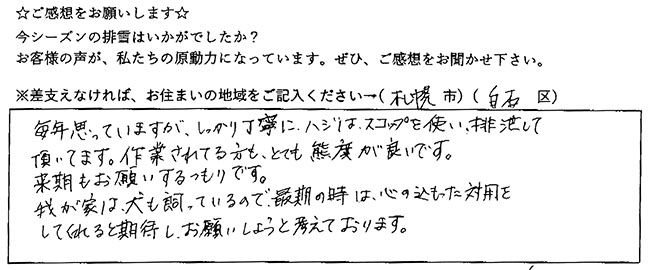 ☆ご感想をお願いします☆
今シーズンの排雪はいかがでしたか？
お客様の声が、私たちの原動力になっています。ぜひ、ご感想をお聞かせ下さい。
※差支えなければ、お住まいの地域をご記入ください→( 札幌 市) ( 白石 区)
毎年思っていますが、しっかり丁寧に、ハジは、スコップを使い、排泄して
頂いてます。作業されてる方も、とても態度が良いです。
来期もお願いするつもりです。
我が家は、犬も飼っているので、最期の時は、心の込もった対用を
してくれると期待し、お願いしようと考えております。